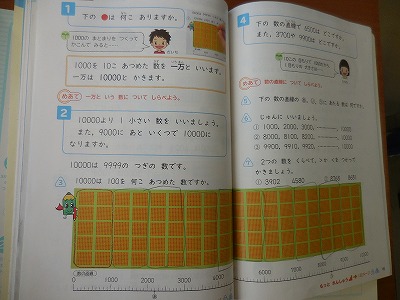 1
下の ●は 何こ ありますか。
1000の まとまりを つくって
かこんで みると……
1000を 10こ あつめた 数を 一万と いいます。
一万は 10000と かきます。
めあて 一万と いう 数に ついて しらべよう。
2
10000より 1 小さい 数を いいましょう。
また、9000に あと いくつで 10000に
なりますか。
10000は 9999の つぎの 数です。
③ 10000は 100を 何こ あつめた 数ですか。
数の直線
0 1000 2000 3000 4000
4
下の 数の直線で 6500は どこですか。
また、3700や 9900は どこですか。
めあて 数の直線に ついて しらべよう。
⑤ 下の 数の直線の
⑥ じゅんに いいましょう。
① 1000、2000、3000、 10000
② 8000、8100、8200、 10000
③ 9900、9910、9920、 10000
⑦ 2つの 数を くらべて、 を つかって
かきましょう。
① 3902 4580 ② 8369 8801
6000 7000 8000 9000 10000